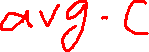 avg. c